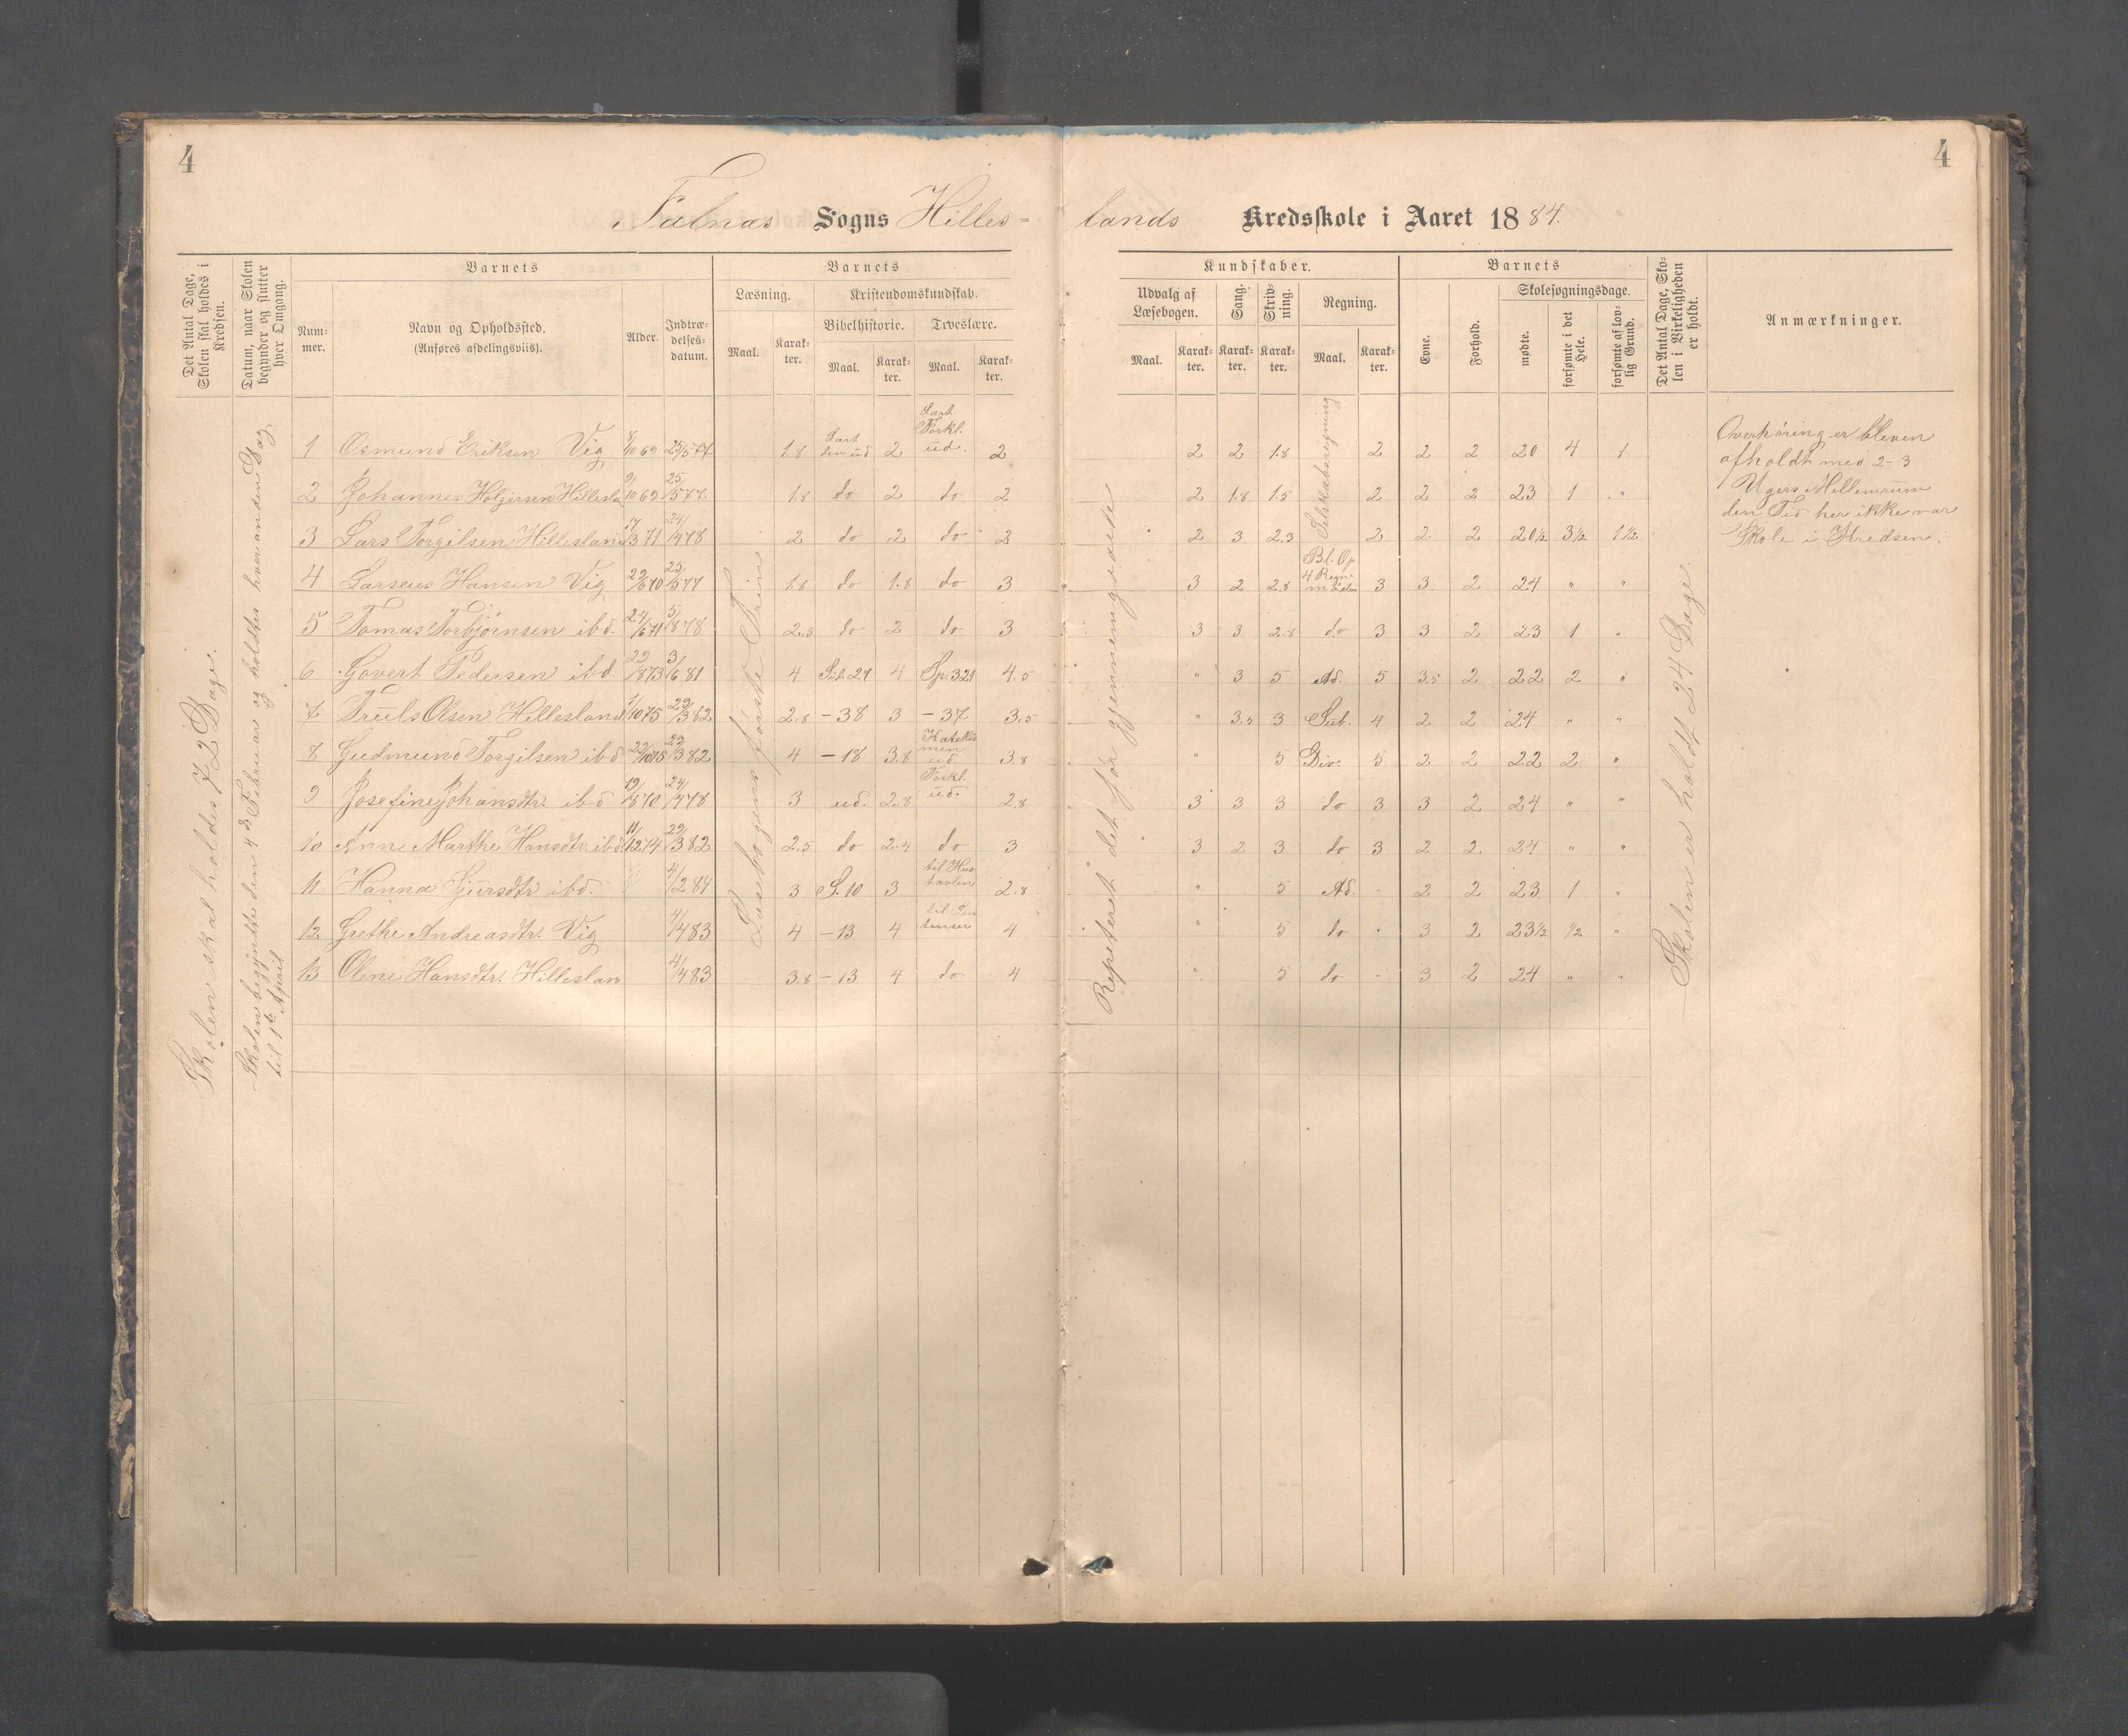 4
4
Falnæs Sogns Hilles=
lands Kredsskole i Aaret 1884.
Det Antal Dage, Skolen skal holdes i Kredsen.
Datum, naar Skolen begynder og slutter hver Omgang.
Barnets
Nummer.
Navn og Opholdssted.
(Anføres afdelingsviis).
Alder.
Indtrædelsesdatum.
Barnets
Læsning.
Maal.
Karakter.
Kristendomskundskab.
Bibelhistorie.
Maal.
Karakter.
Troeslære.
Maal.
Karakter.
Kundskaber.
Udvalg af Læsebogen.
Maal.
Karakter.
Sang.
Karakter.
Skrivning.
Karakter.
Regning.
Maal.
Karakter.
Barnets
Evne.
Forhold.
Skolesøgningsdage.
mødte.
forsømte i det Hele.
forsømte af lovlig Grund.
Det Antal Dage, Skolen i Virkeligheden er holdt.
Anmærkninger.
Skolen skal holdes 72 Dage.
Skolen begyndte den 4de Februar og holdtes hveranden Dag
til 1ste April
Læsebogens første Trin
Repeteret det før gjennemgaaede
Selskabsregning
Skolen er holdt 24 Dage.
1 Osmund Eriksen Vig 8/10 69 25/5 77 1.8 Lært dem ud 2 Lært Forkl. ud. 2 2 2 1.8 2 2 2 20 4 1
2 Johannes Holgersen Hillesla 9/10 69 25/5 77 1.8 do 2 do 2 2 1.8 1.5 2 2 2 23 1 "
3 Lars Torgilsen Hillesland 17/3 71 24/4 78 2 do 2 do 2 2 3 2.3 2 2 2 20½ 3½ 1½
4 Larseus Hansen Vig 29/6 70 25/5 77 1.8 do 1.8 do 3 3 2 2.8 Bl. Op 4 Regn 3 3 2 24 " "
5 Tomas Torbjørnsen ibd. 24/6 71 5/8 78 2.3 do 2 do 3 3 3 2.8 do 3 3 2 23 1 "
6 Govert Pedersen ibd 29/8 73 3/6 81 4 27 4 Sp. 321 4.5 " 3 5 Ad. 5 3.5 2 22 2 "
7 Truls Olsen Hillesland 1/10 75 29/3 82 2.8 - 38 3 - 37 3.5 " 3.5 3 Sub. 4 2 2 24 " "
8 Gudmund Torgilsen ibd 29/10 75 29/3 82 4 - 18 3.8 Katekismen ud. 3.8 " 5 Div. 5 2 2 22 2 "
9 Josefine Johansdtr. ibd 19/8 70 24/4 78 3 ud. 2.8 Forkl. ud. 2.8 3 3 3 do 3 3 2 24 " "
10 Anne Marthe Hansdtr ibd 11/12 74 29/3 82 2.5 do 2.4 do 3 3 2 3 do 3 2 2 24 " "
11 Hanna Sjursdtr ibd. 4/2 84 3 S. 10 3 til Hustavlen 2.8 " 5 Ad. " 2 2 23 1 "
12 Grethe Andreasdtr. Vig 4/4 83 4 - 13 4 4 " 5 do " 3 2 23½ ½ "
13 Olene Hansdtr. Hilleslan 4/4 83 3.8 - 13 4 do 4 " 5 do - 3 2 24 " "
Overhøring er bleven
afholdt med 2-3
Ugers Mellemrum
den Tid her ikke var
Skole i Kredsen.